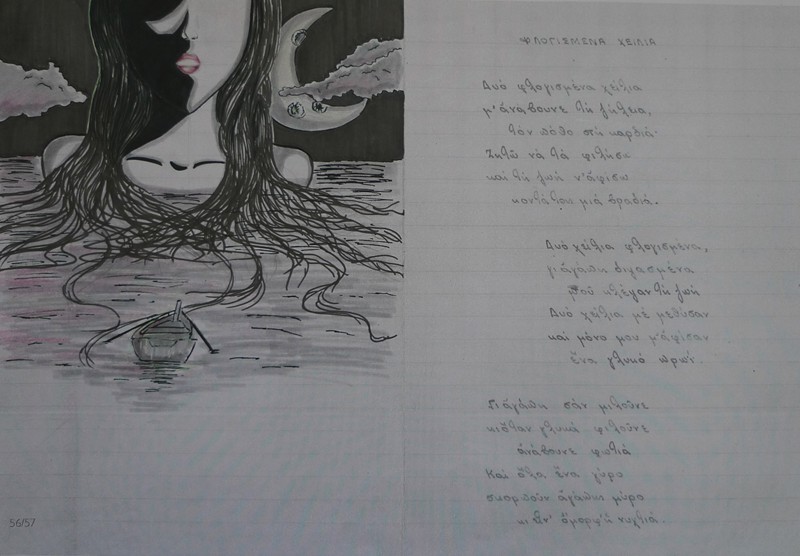 ΦΛΟΓΙΣΜΕΝΑ ΧΕΙΛΙΑ
Δυό φλογισμένα χείλια
μ' ἀνάβουνε τή ζήλεια,
τόν πόθο στή καρδιά·
Ζητῶ νά τά φιλήσω
καί τή ζωή ν' ἀφίσω
κοντά του μιά βραδιά.
Δυό χείλια φλογισμένα,
γι' ἀγάπη διψασμένα
ποῦ κλέψαν τή ζωή
Δυό χείλια μέ μεθύσαν
καί μόνο μου μ' ἀφίσαν
ἕνα γλυκό πρωΐ.
Γι' ἀγάπη σάν μιλοῦνε
κι' ὅταν γλυκά φιλοῦνε
ἀνάβουνε φωτιά
Καί ὅλα ἕνα γύρο
σκορποῦν ἀγάπης μύρο
κι' εἶν' ὄμορφ' ἡ νυχτιά.
56/57